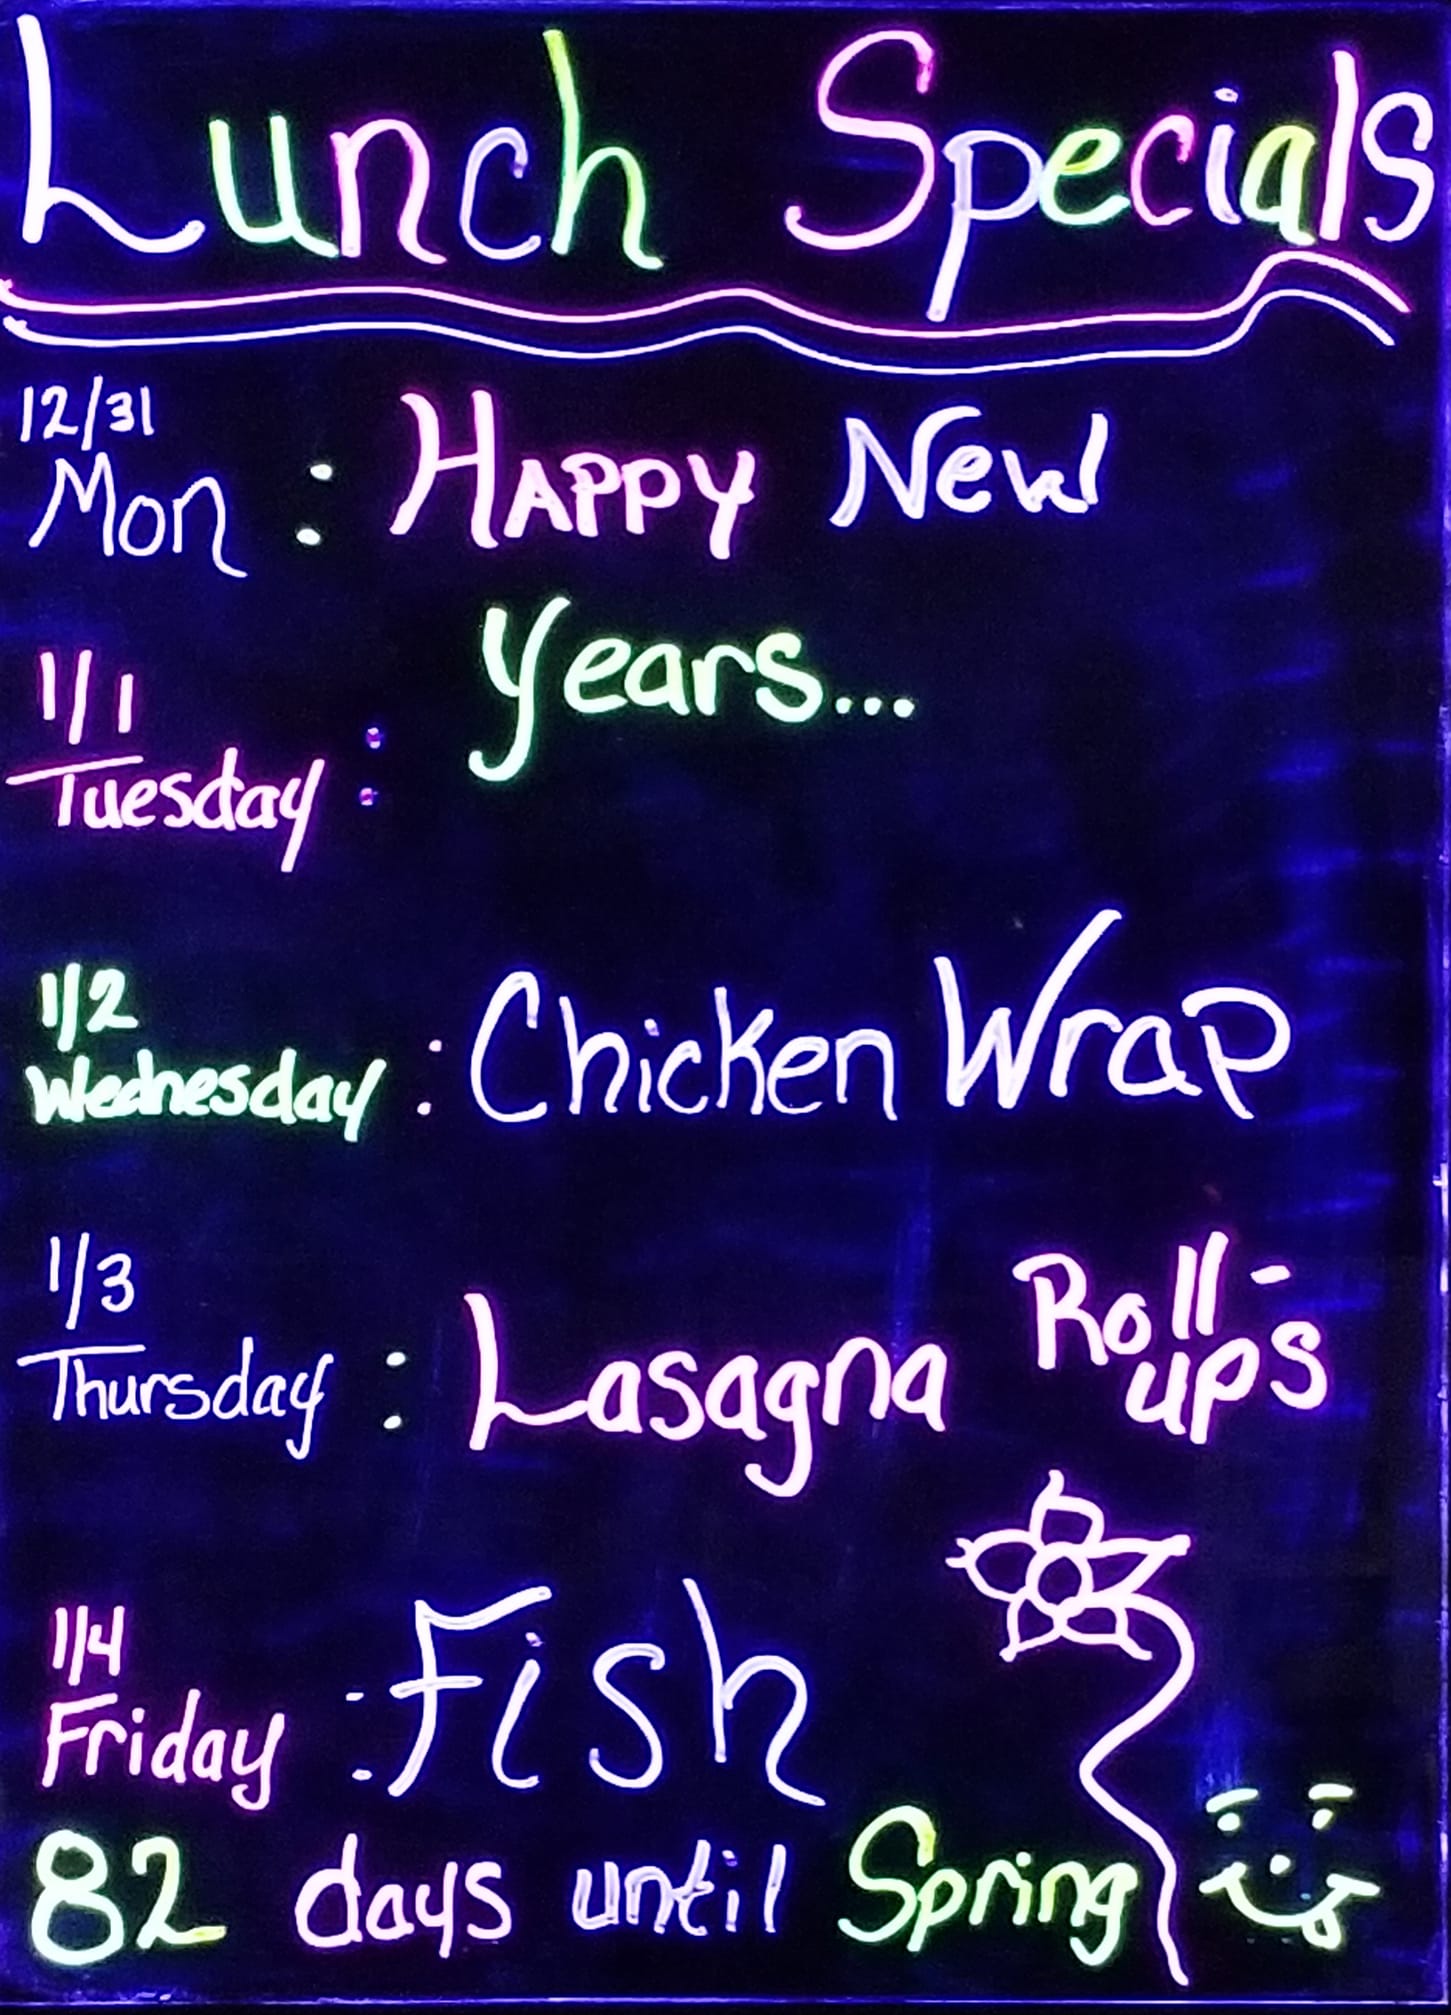 Lunch Specials
12/31
Mon : HAPPY New
Years...
1/1
Tuesday :
1/2
Wednesday : Chicken Wrap
1/3
Thursday : Lasagna Roll-
ups
1/4
Friday : Fish
82 days until Spring